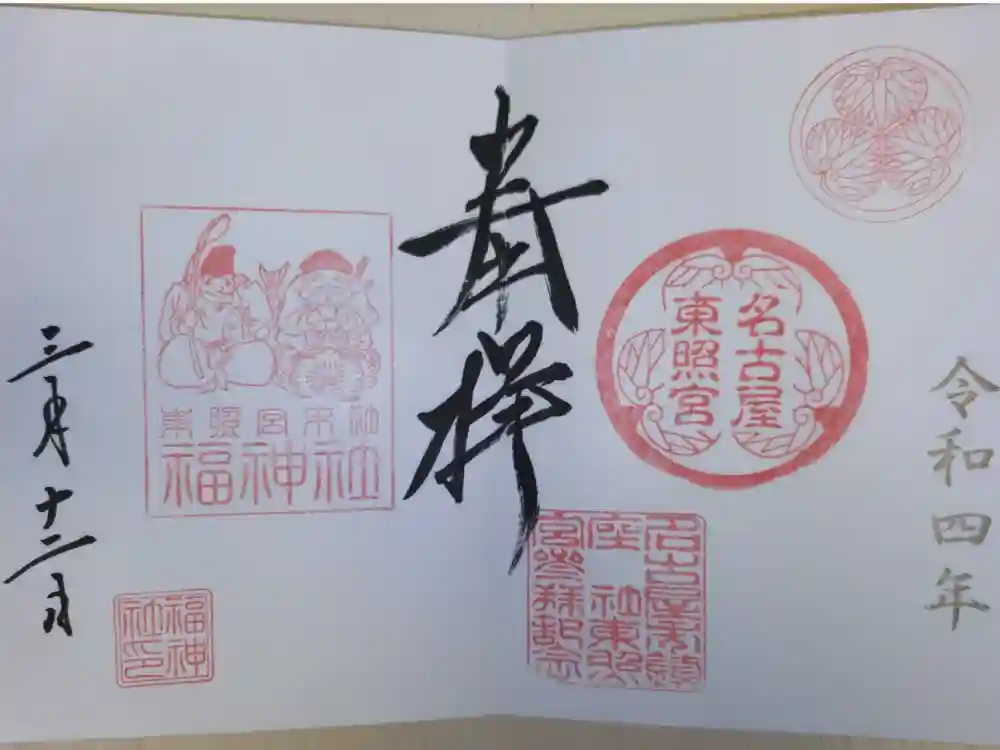 令和四年
名古屋
東照宮
奉拝
名古屋市鎮
座 社東照
宮参拝記念
東照宮末社
福神社
三月十二日
福神
社印